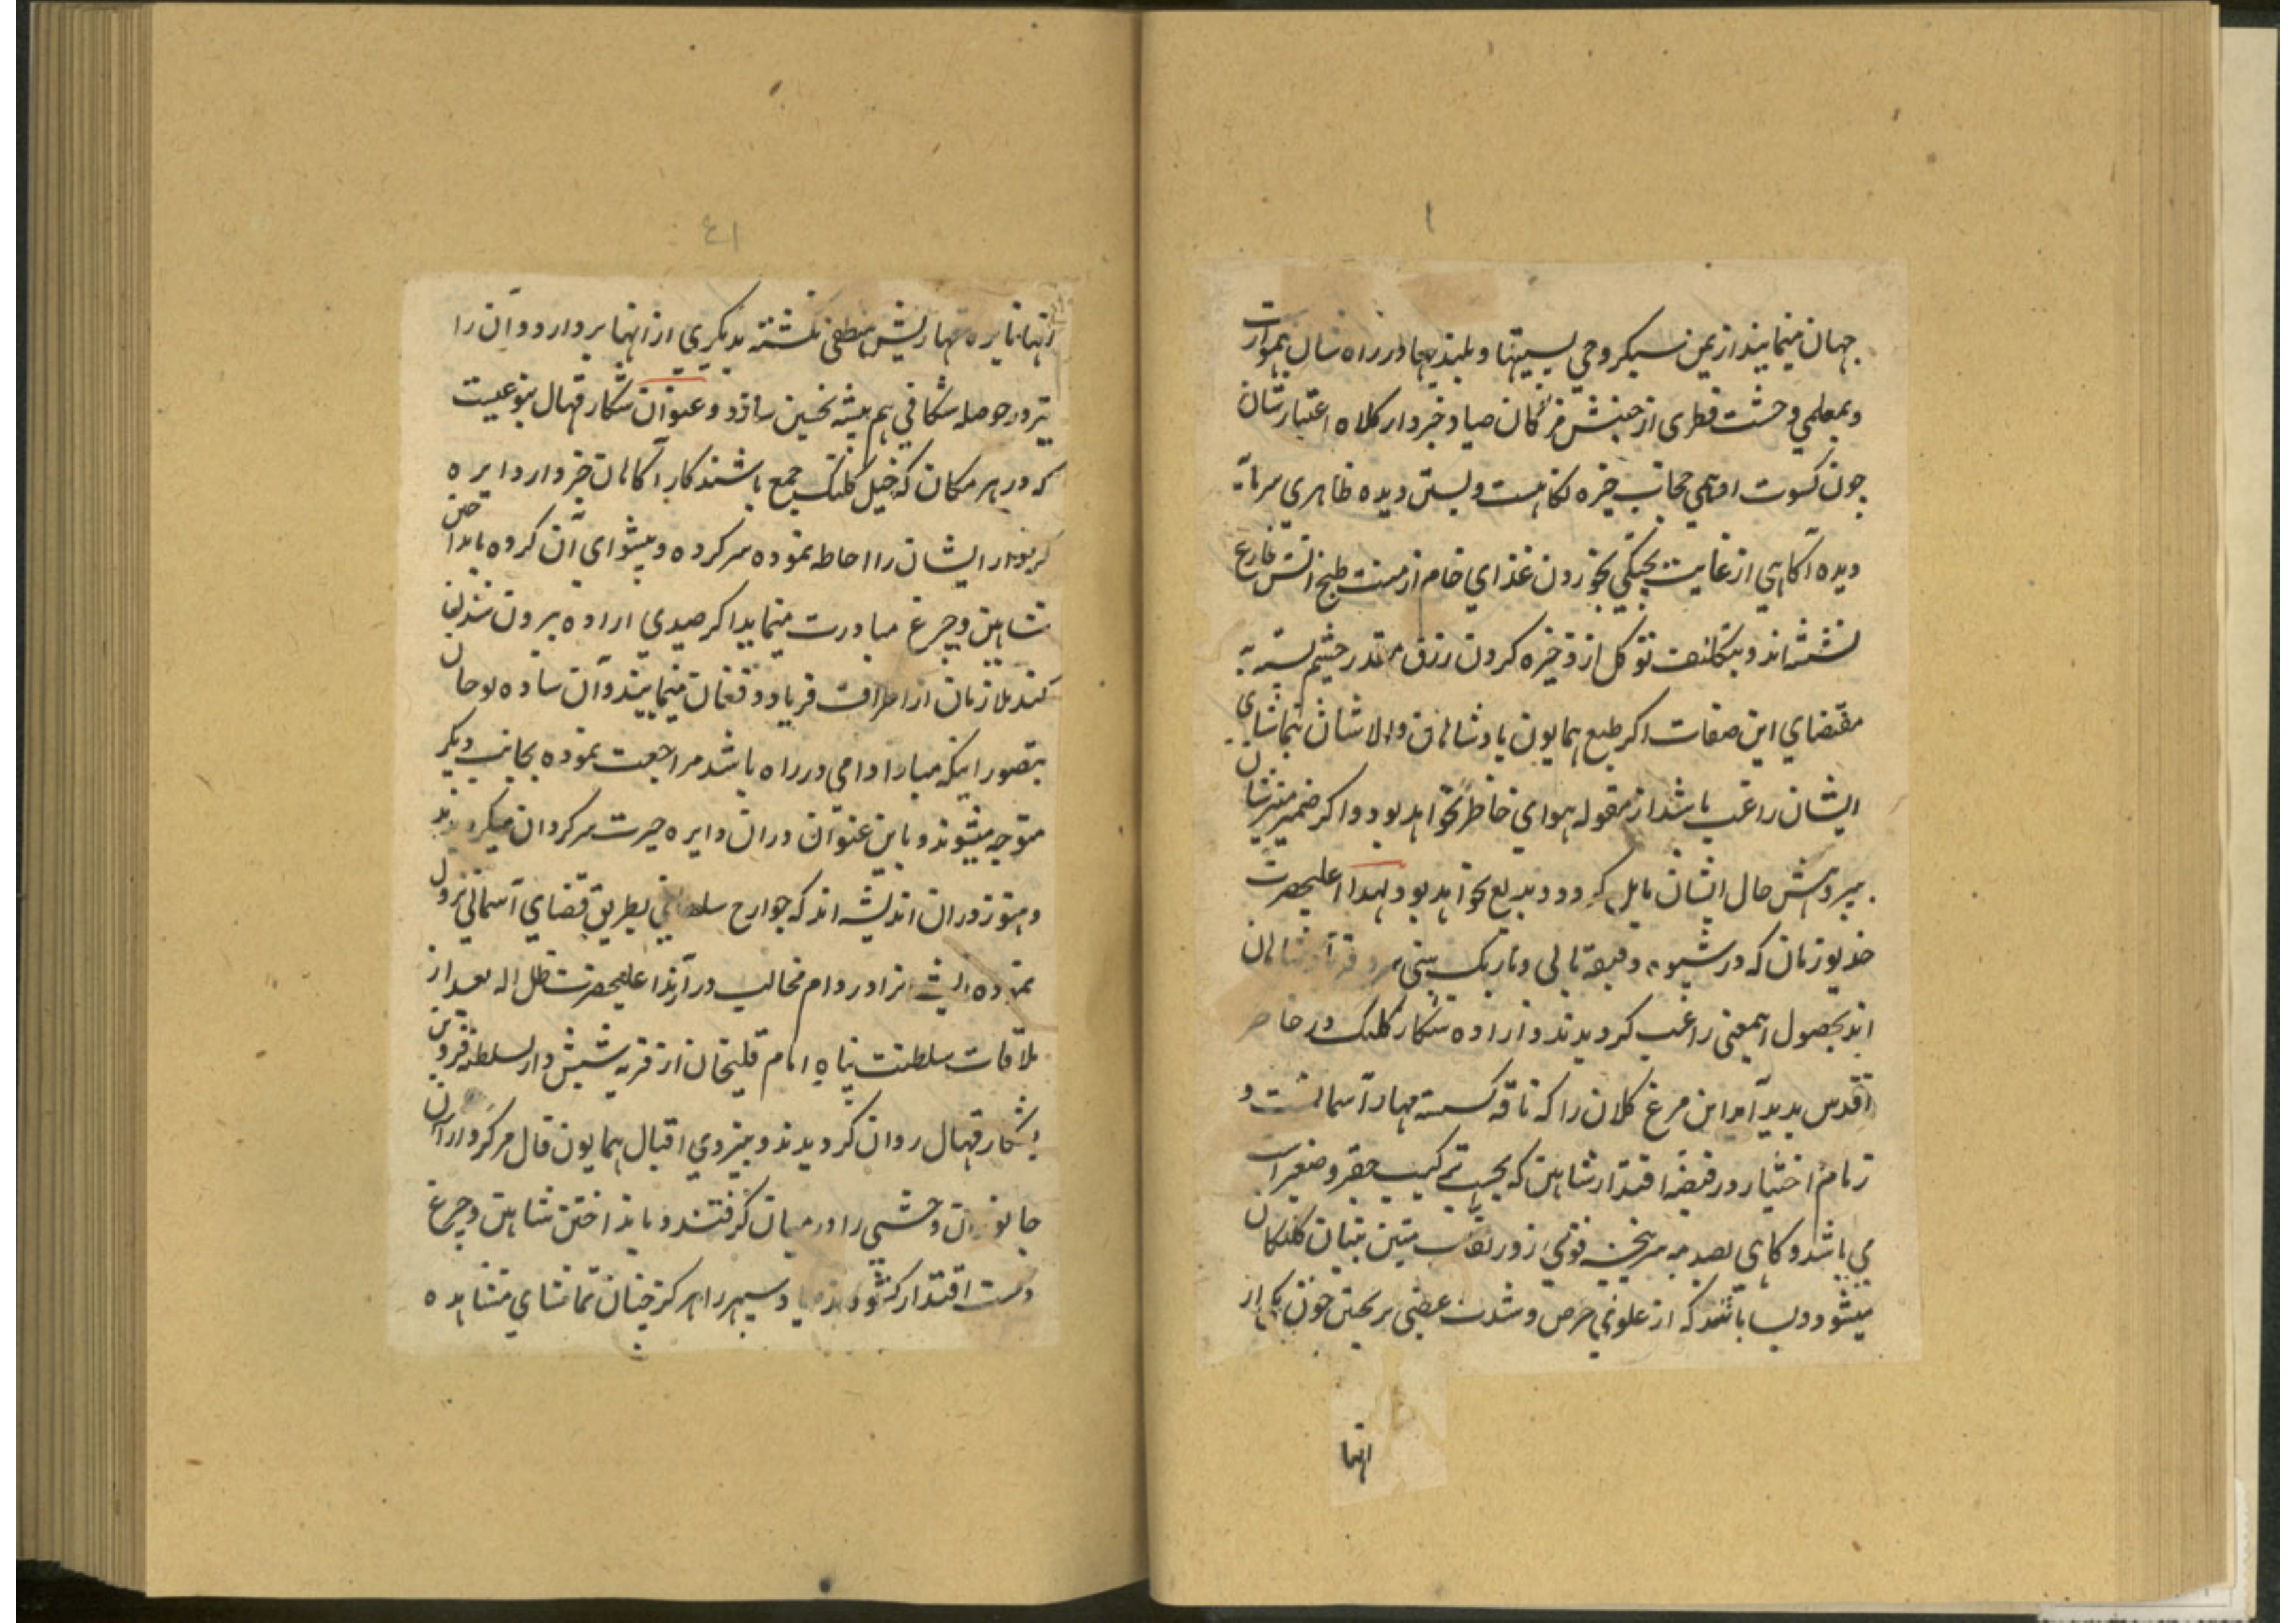 جهان مینمایند از یمن سبکروحی پستیها و بلندیها در راه شان هموارست
و بمعلمی وحشت فطری از جنبش مژگان صیاد خبردار کلاه اعتبارشان
چون کسوت حجاب خیره نگاهیست و بستن دیده ظاهری سرمایهٔ
دیده آگاهی از غایت پختگی بخوردن غذای خام از منت طبخ آتش فارغ
نشسته اند و بتکلف توکل از ذخیره کردن رزق مقدر چشم بسته به
مقتضای این صفات اکر طبع همایون پادشاهان والاشان بتماشای
ایشان راغب باشد از مقوله هوای خاطر نخواهد بود و اکر ضمیر منیرشان
بپروهش حال ایشان مایل کردد بدیع نخواهد بود لهذا اعلیحضرت
خدیو زمان که در شیوه دقیقه یابی و باریک بینی سر دفتر پادشاهان
اند بحصول اینمعنی راغب کردیدند و اراده شکار کلنک در خاطر
اقدس پدید آمد این مرغ کلان را که ناقه کسسته مهار آسمانست و
زمام اختیار در قبضهٔ اقتدار شاهین که بحسب ترکیب حقیر و صغیر است
می باشد و کاهی بصدمه سرپنجه قوی زور متین بنیان کلنکان
میشود و بسا باشد که از غلوی حرص و شدت غضبی بریختن خون یکی از
انها
انها نایره قهارش منطفی نکشته بدیکری از انها پردازد و آن را
نیز در حوصله شکافی هم پیشه نخستین سازد و عنوان شکار قهال بنوعیست
که در هر مکان که خیل کلنک جمع باشند کار آکاهان خبردار دایره
کردار ایشان را احاطه نموده سرکرده و پیشوای آن کروه بانداختن
شاهین و چرغ مبادرت مینماید اکر صیدی اراده بیرون شدن
کند ملازمان از اطراف فریاد و فغان مینمایند و آن ساده لوحان
بتصور اینکه مبادا دامی در راه باشد مراجعت نموده بجانب دیکر
متوجه میشوند و باین عنوان در آن دایره حیرت سرکردان میکردند
و هنوز در آن اندیشه اند که جوارح سلطانی بطریق قضای آسمانی نزول
نموده ایشانرا در دام مخالب در آرند اعلیحضرت ظل اله بعد از
ملاقات سلطنت پناه امام قلیخان از قریه شیش دار السلطنه قزوین
بشکار قهال روان کردیدند و بنیروی اقبال همایون فال مرکزوار آن
جانوران وحشی را در میان کرفتند و بانداختن شاهین و چرغ
دست اقتدار کشودند صیاد سپهر را هرکز چنان تماشای مشاهده